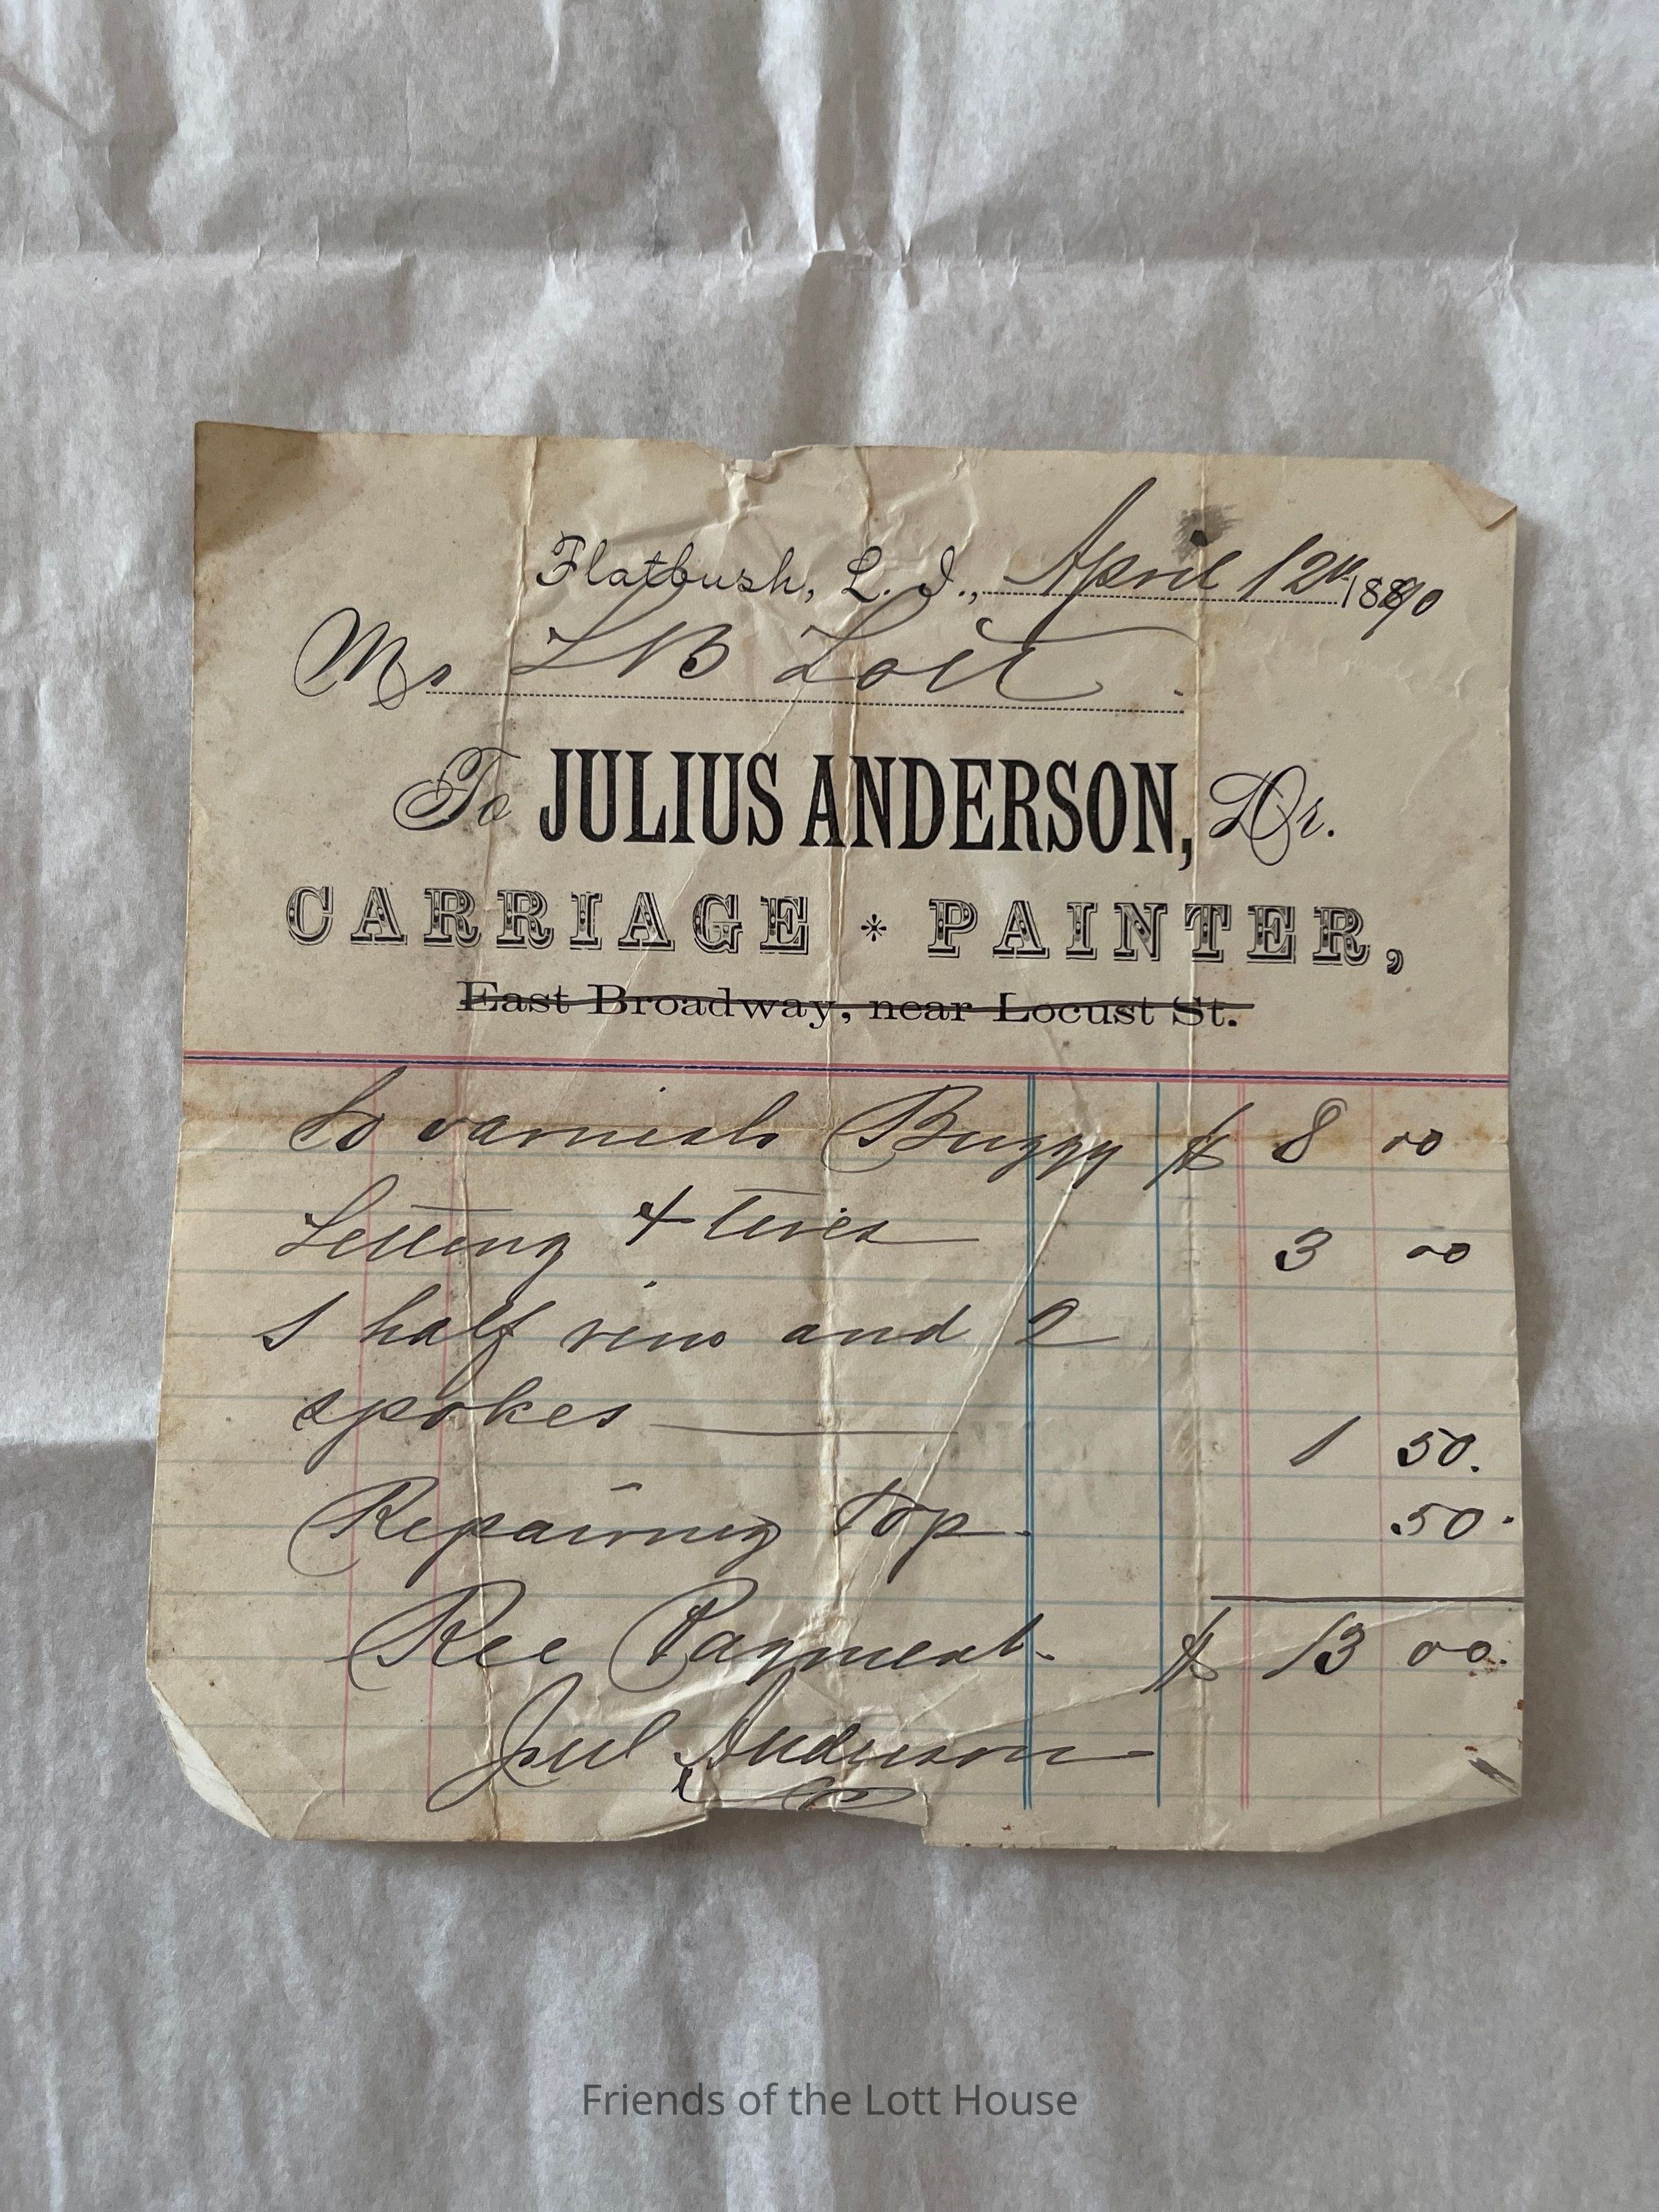 Flatbush, L. I., April 12th 1890
Mr L B Lott
To JULIUS ANDERSON, Dr.
CARRIAGE * PAINTER,
East Broadway, near Locust St.
to varnish Buggy $ 8 00
Setting 4 tires 3 00
1 half rim and 2
spokes 1 50.
Repairing top. .50.
Rec Payment. $ 13 00.
Jul Anderson
Friends of the Lott House